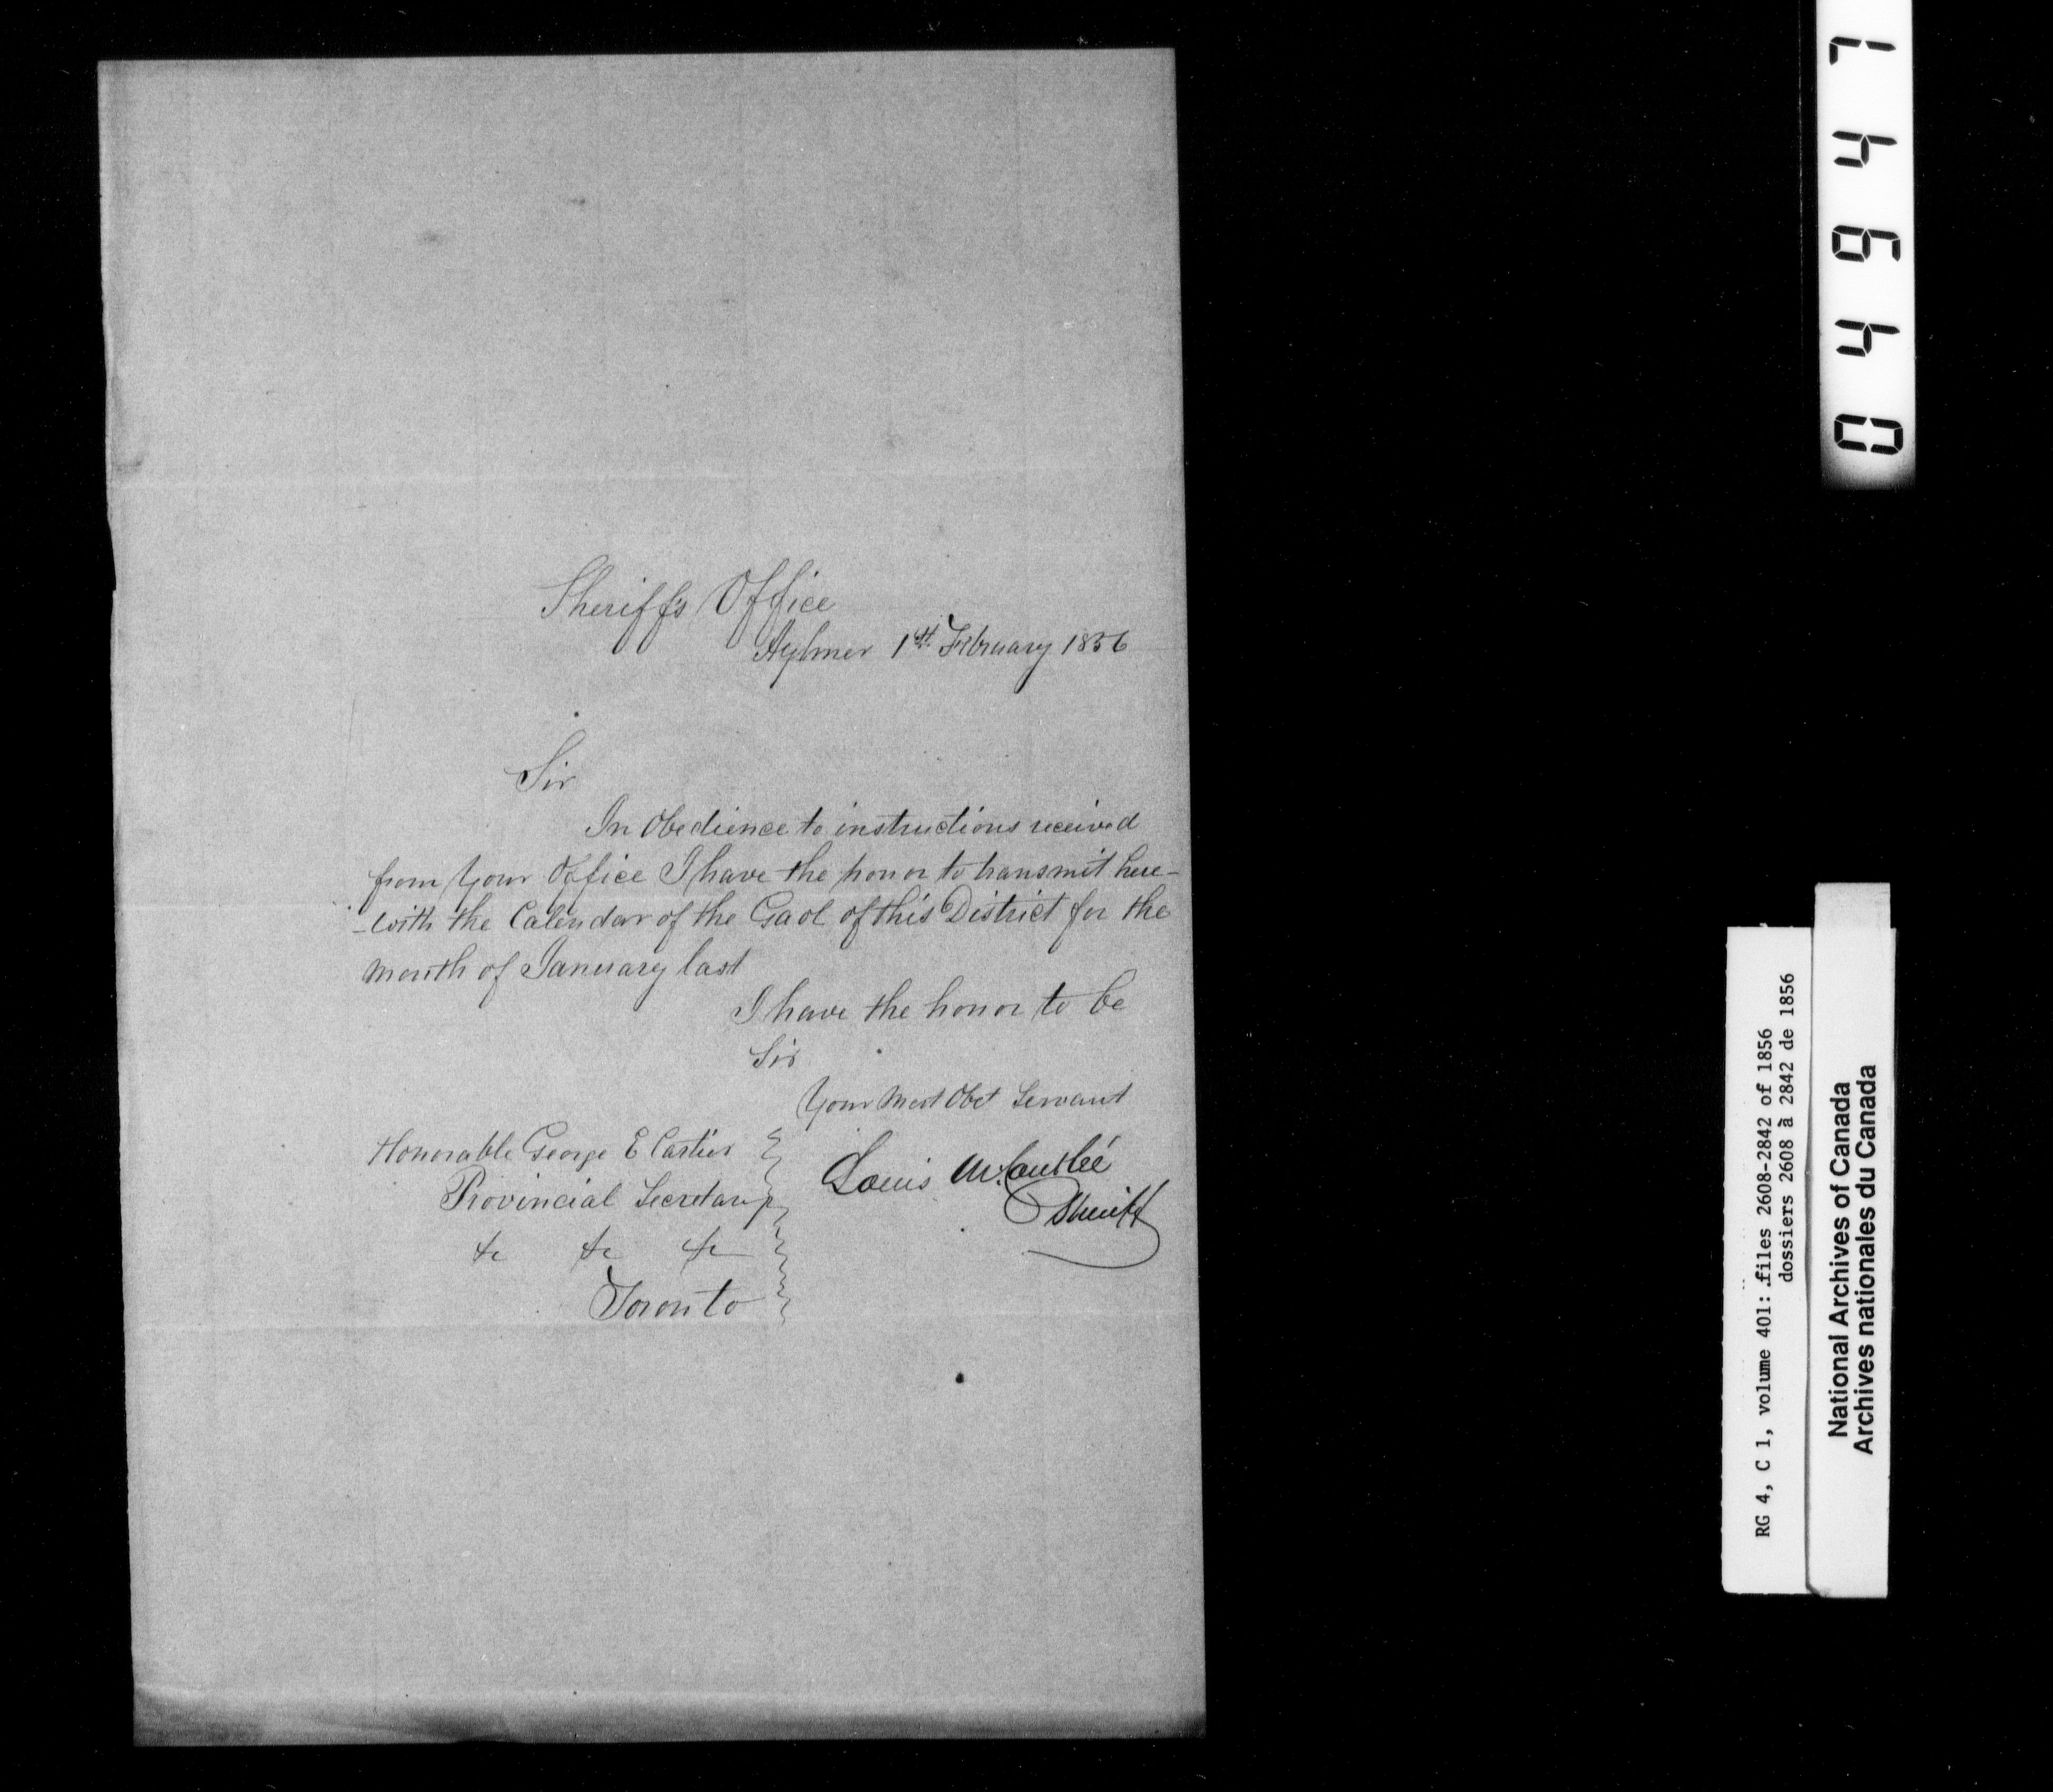 Sheriff's Office
Aylmer 1st February 1856
Sir
In Obedience to instructions received
from Your Office I have the honor to transmit here-
-with the Calendar of the Gaol of this District for the
month of January last
I have the honor to be
Sir
Your Most Obet Servant
Honorable George E Cartier
Provincial Secretary
&c &c &c
Toronto
Louis M. Coutlée
Sheriff
04947
RG 4, C 1, volume 401: files 2608-2842 of 1856
dossiers 2608 à 2842 de 1856
National Archives of Canada
Archives nationales du Canada